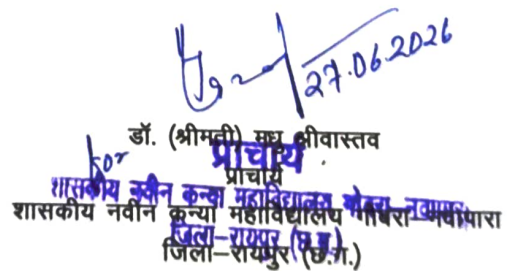 27.06.2026
डॉ. (श्रीमती) मधु श्रीवास्तव
For
प्राचार्य
प्राचार्य
शासकीय नवीन कन्या महाविद्यालय गोबरा नवापारा
शासकीय नवीन कन्या महाविद्यालय गोबरा नवापारा
जिला-रायपुर (छ.ग.)
जिला-रायपुर (छ.ग.)